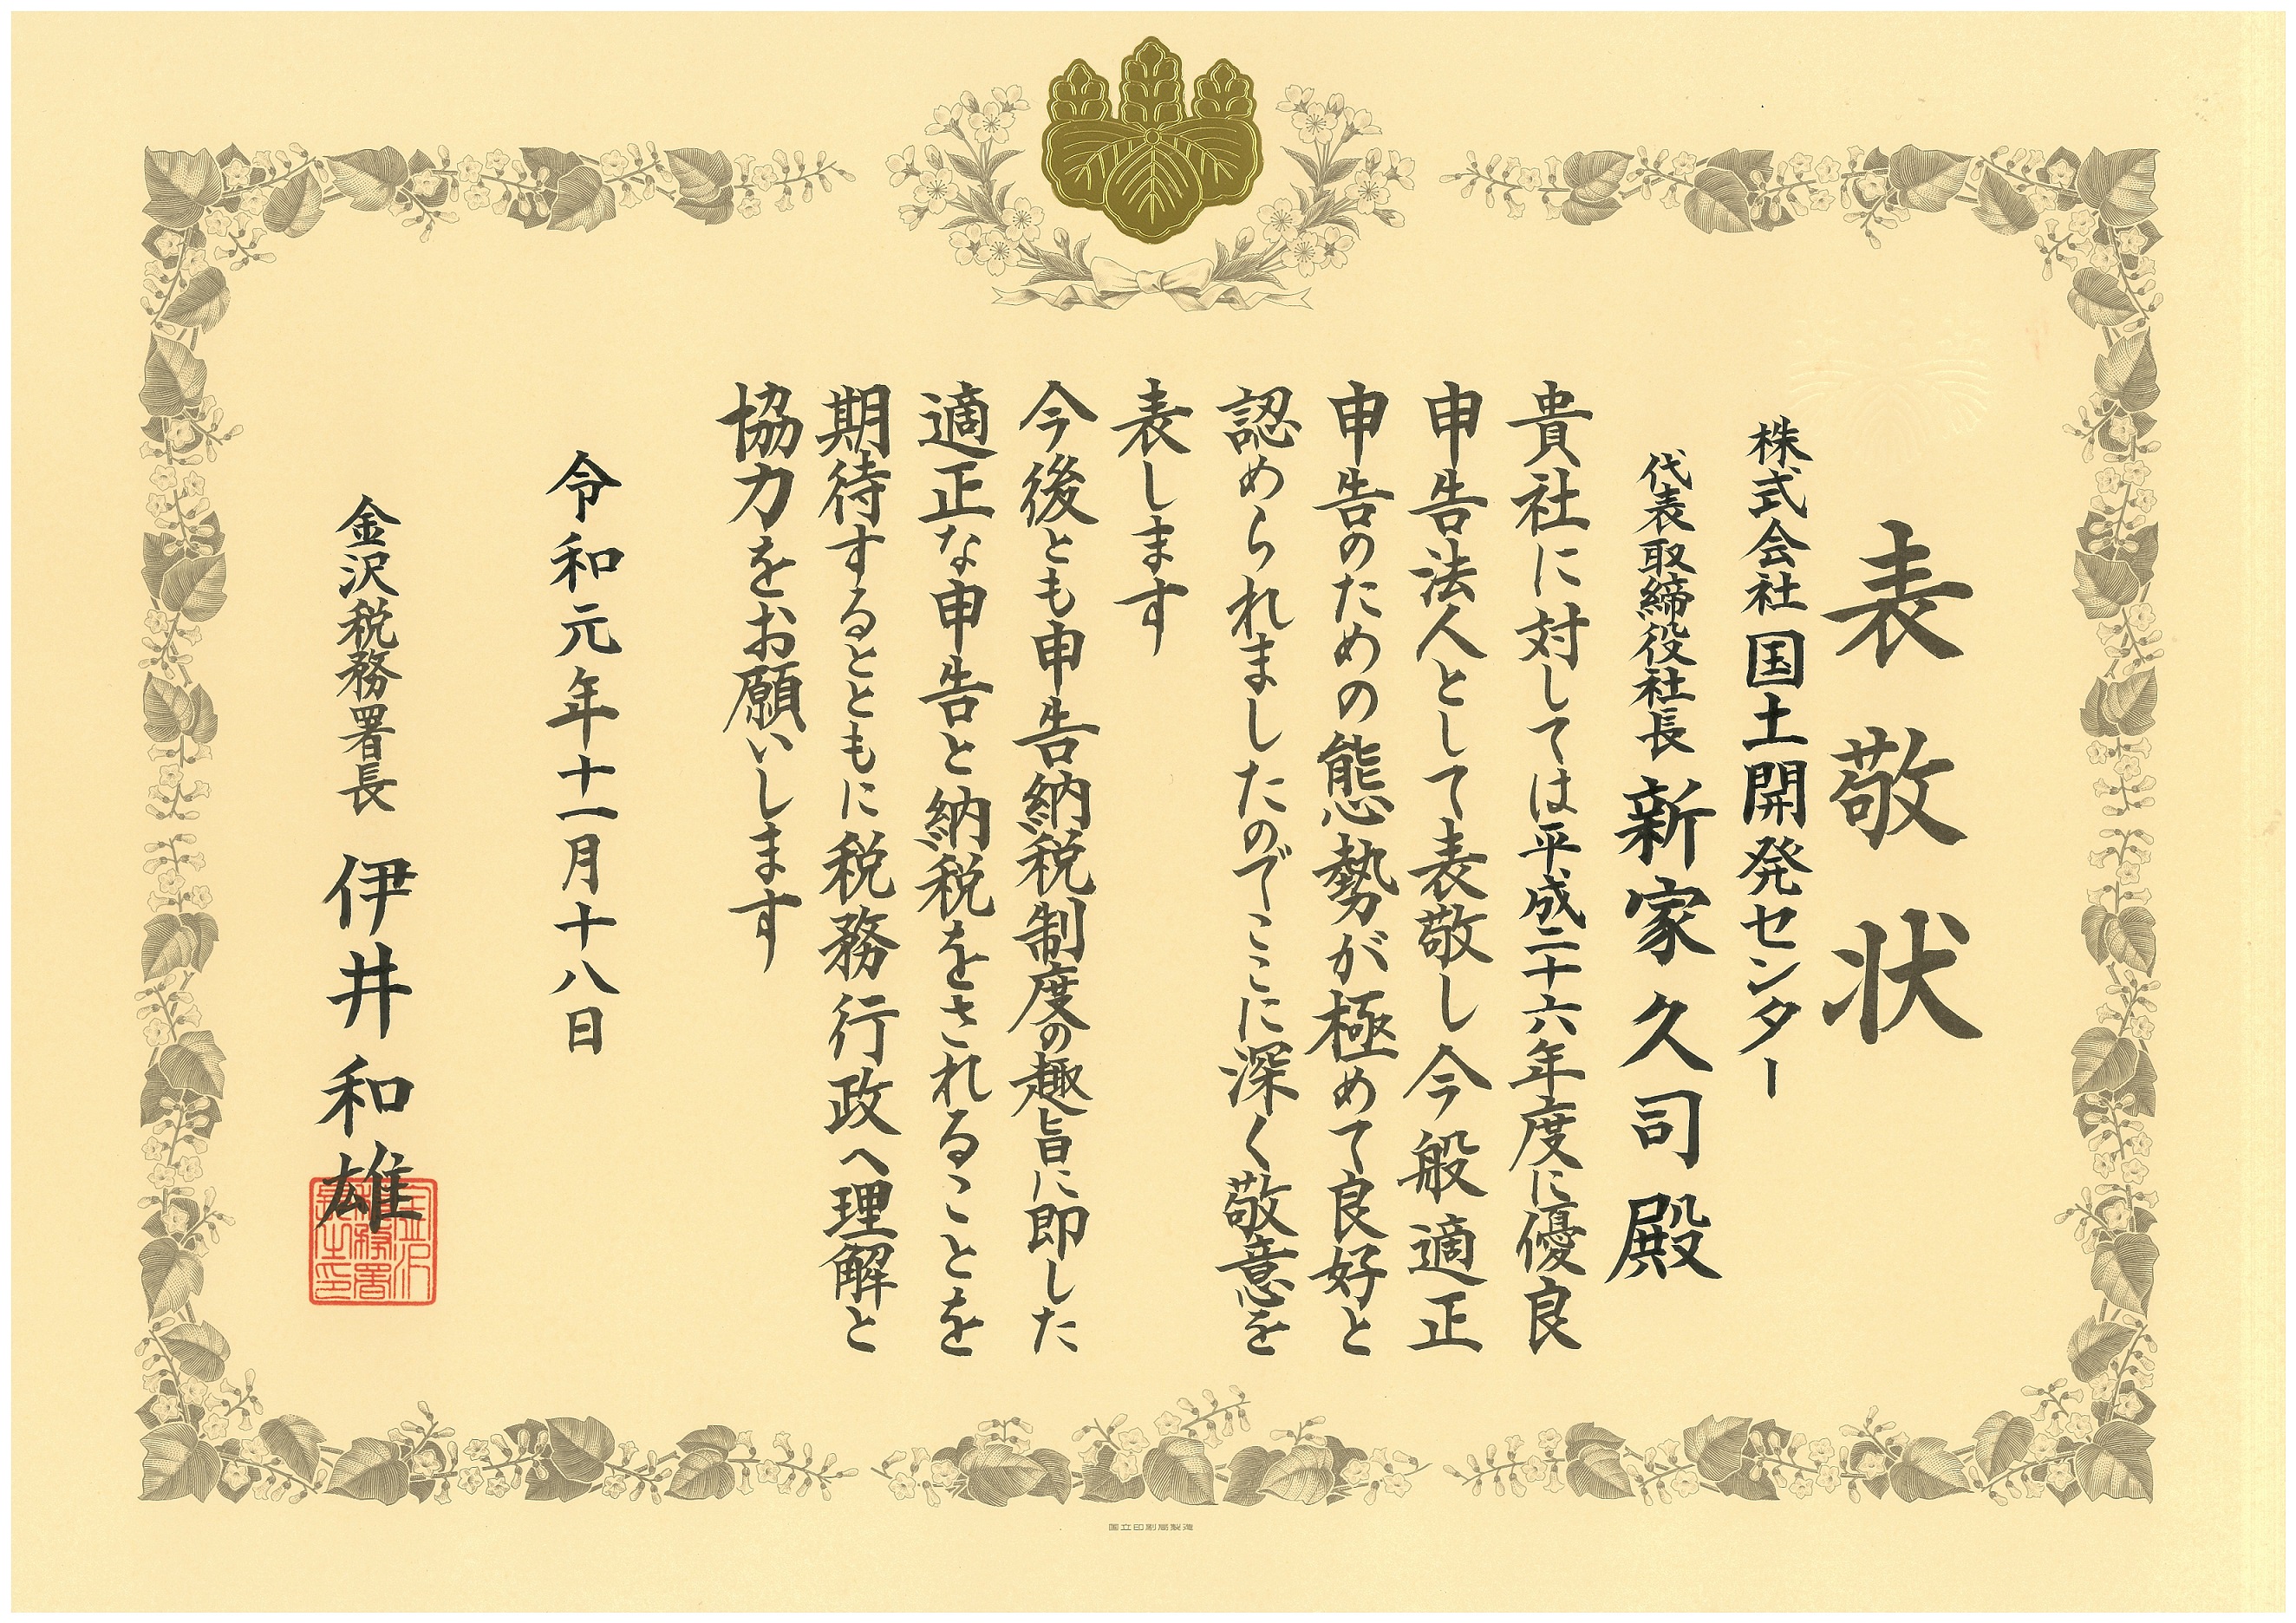 表敬状
株式会社国土開発センター
代表取締役社長 新家久司殿
貴社に対しては平成二十六年度に優良
申告法人として表敬し今般適正
申告のための態勢が極めて良好と
認められましたのでここに深く敬意を
表します
今後とも申告納税制度の趣旨に即した
適正な申告と納税をされることを
期待するとともに税務行政へ理解と
協力をお願いします
令和元年十一月十八日
金沢税務署長 伊井和雄
金沢
税務署
長之印
国立印刷局製造